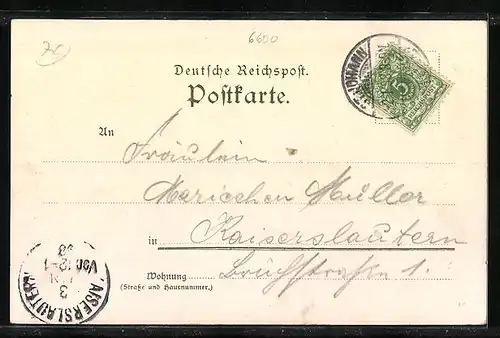 6600
Deutsche Reichspost.
Postkarte.
ST. JOHANN
An
Fräulein
Mariechen Müller
in Kaiserslautern
Wohnung Bruchstraße 1.
(Straße und Hausnummer.)
KAISERSLAUTERN
3
Vor. 12-1
98